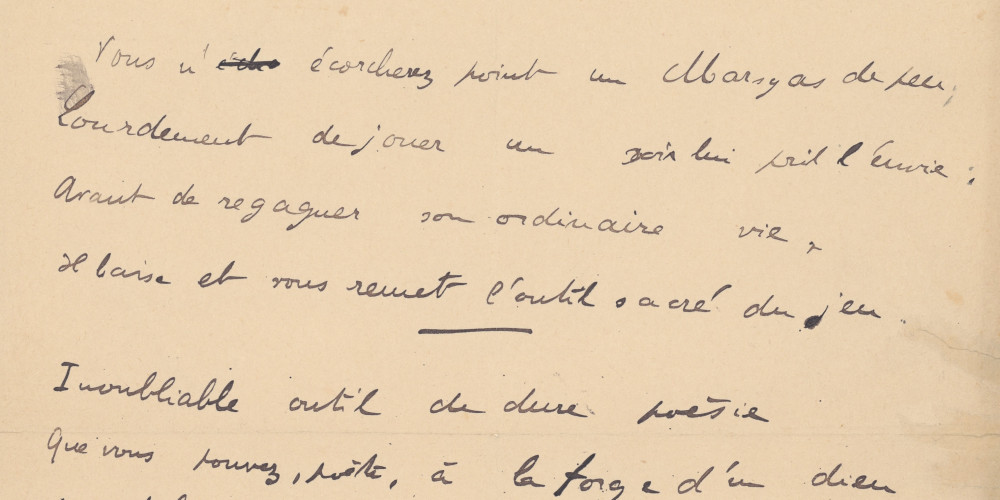 Vous n' écorcherez point un Marsyas de peu,
Lourdement de jouer un soir lui prit l'envie ;
Avant de regagner son ordinaire vie,
Il baise et vous remet l'outil sacré du jeu.
Inoubliable outil de dure poésie
Que vous pouvez, poète, à la forge d'un dieu